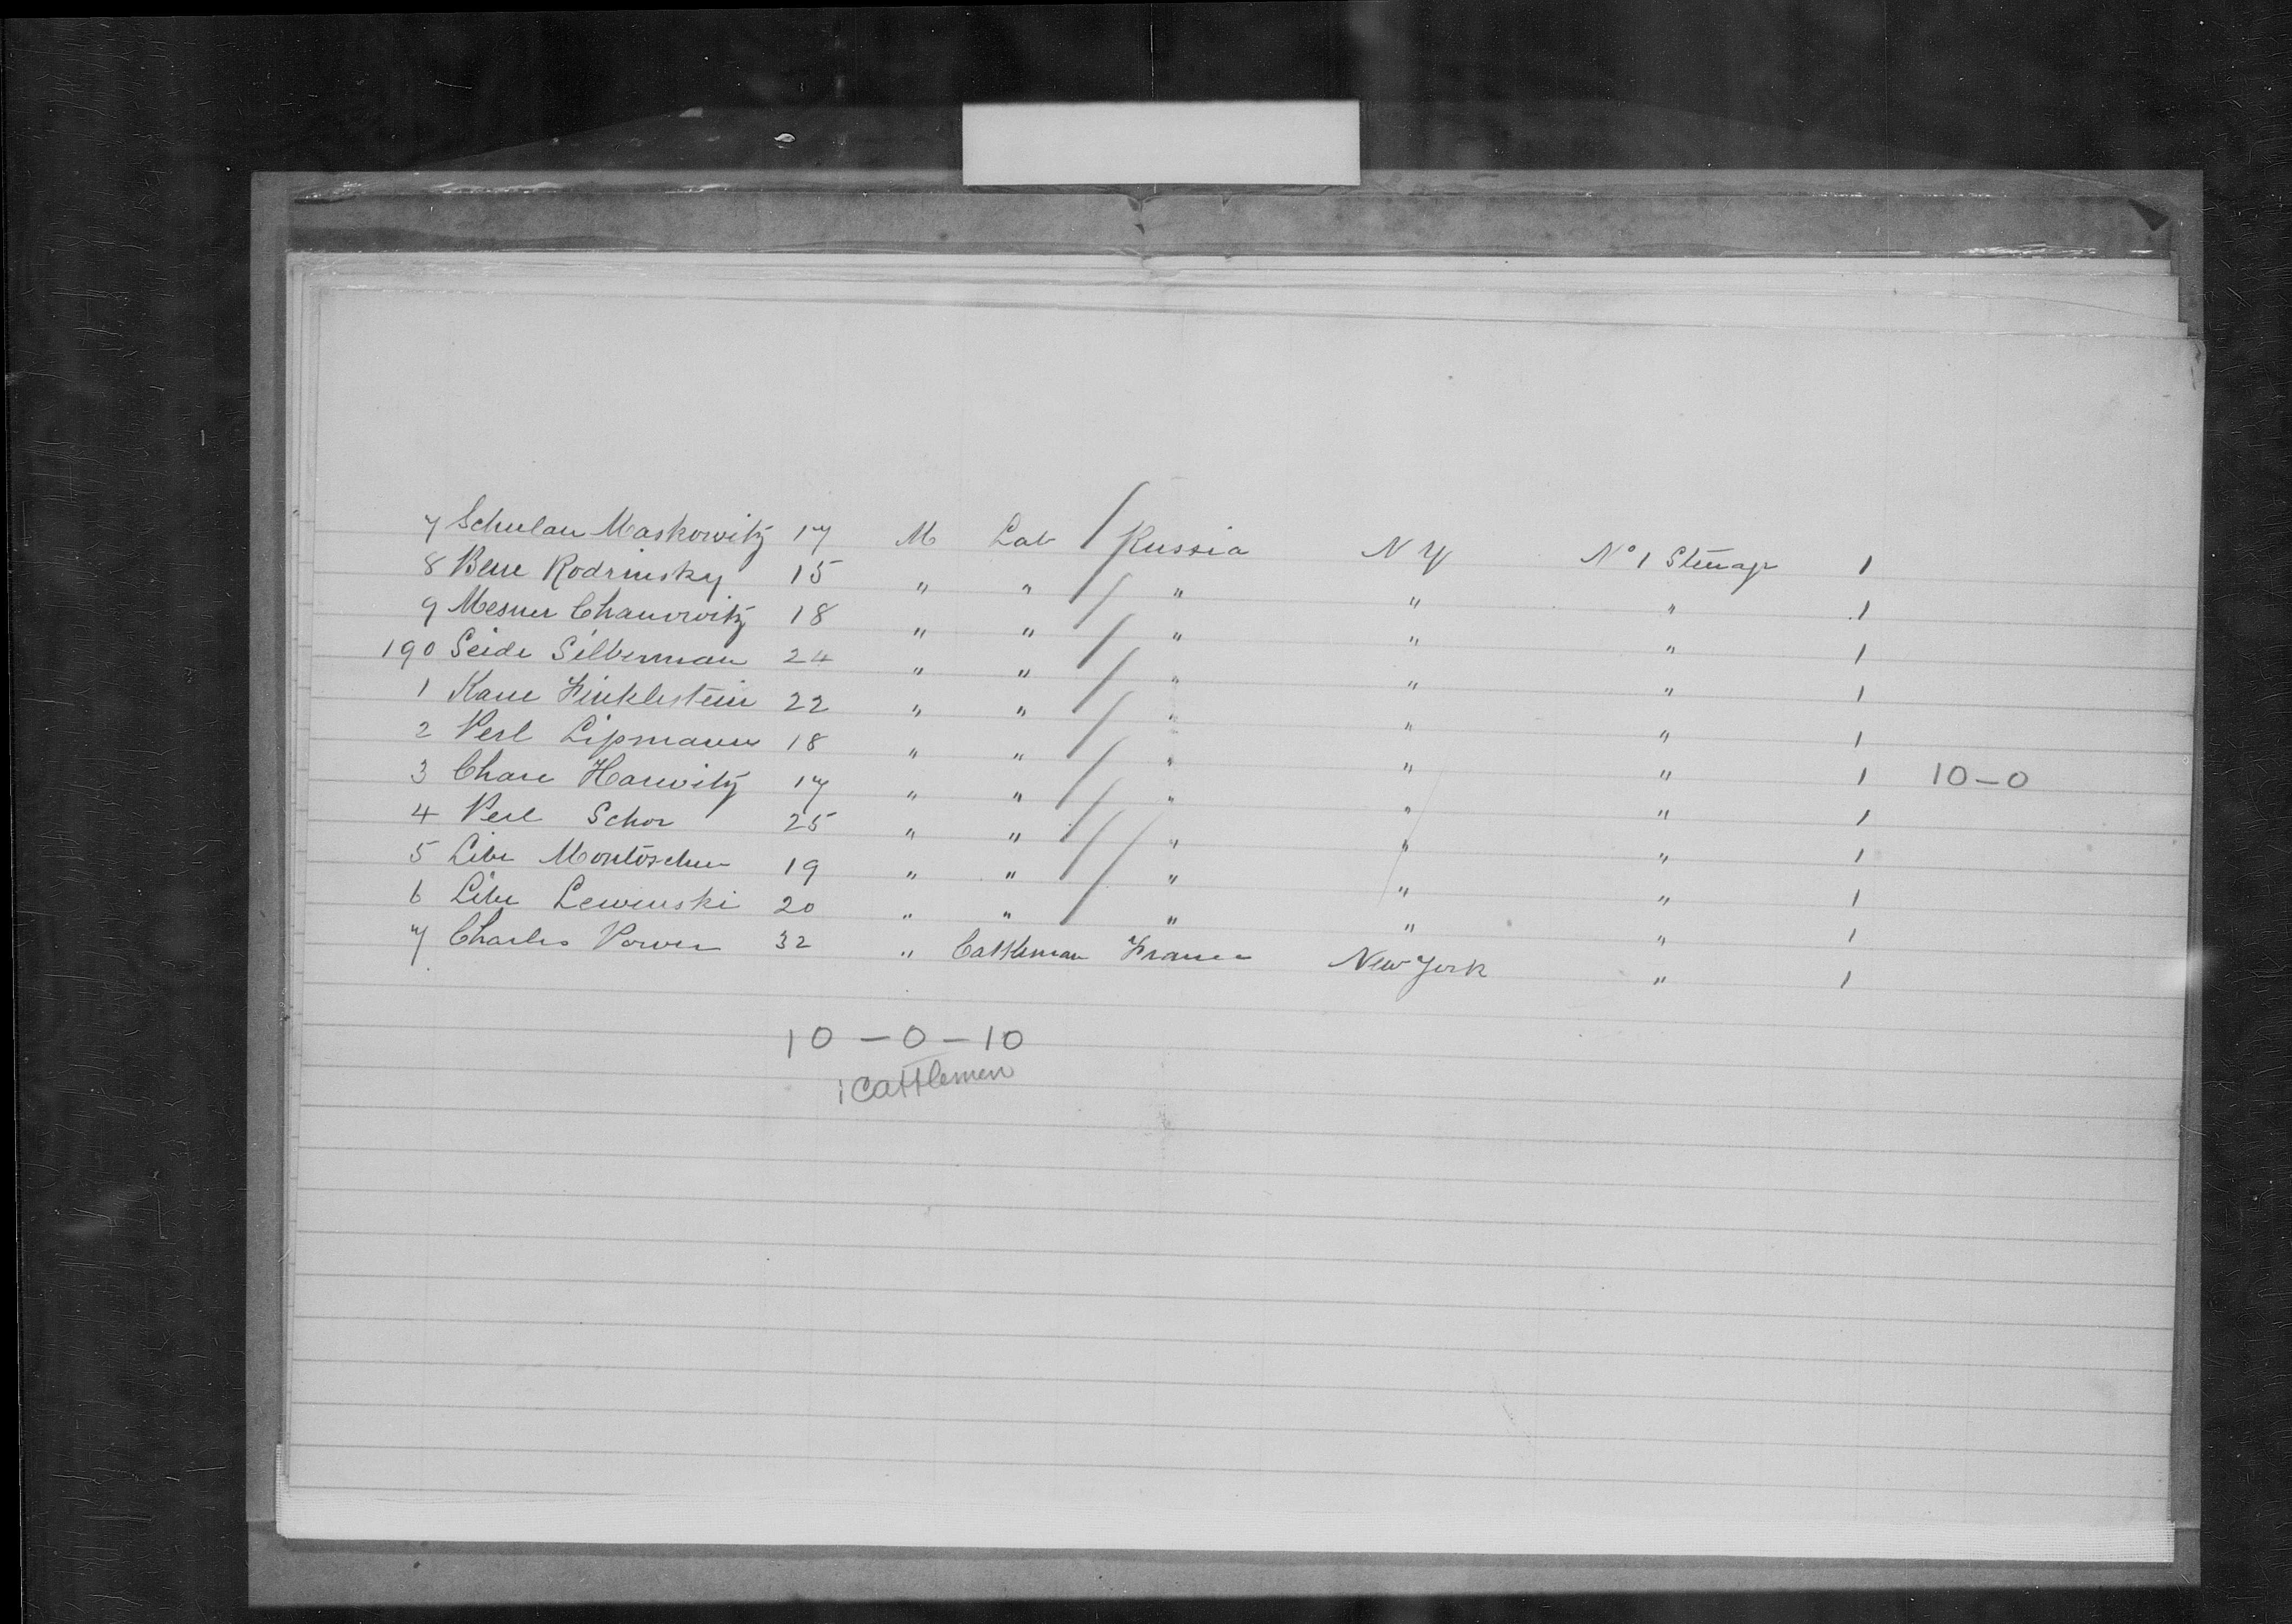 7 Schulan Maskowitz 17 M Lab / Russia N Y No 1 Steerage 1
8 Bene Rodrinsky 15 " " / " " " 1
9 Mesner Chanowitz 18 " " / " " " 1
190 Seide Silberman 24 " " / " " " 1
1 Kane Finklestein 22 " " / " " " 1
2 Perl Lipmann 18 " " / " " " 1 10-0
3 Chare Harwitz 17 " " / " " " 1
4 Perl Schor 25 " " / " " " 1
5 Libe 19 " " / " " " 1
6 Libe Lewinski 20 " " / " " " 1
7 Charles Power 32 " Cattleman France New York " 1
10 - 0 - 10
1 Cattlemen